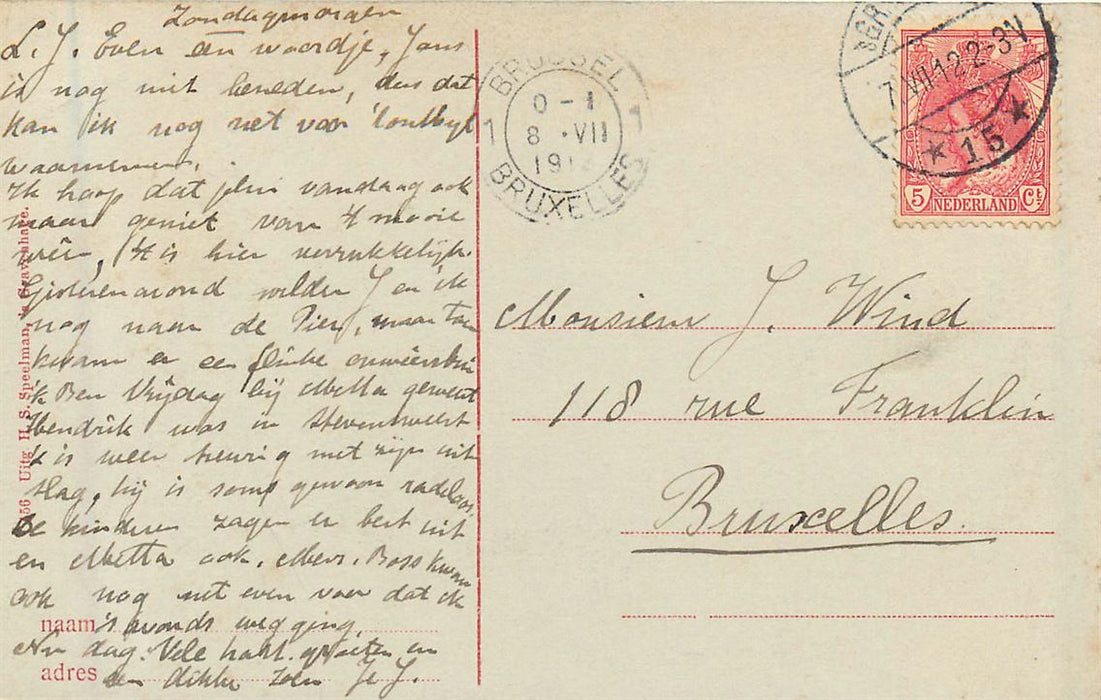 Zondagmorgen
L. J. Even één woordje, Jans
is nog niet beneden, dus dat
kan ik nog net voor 't ontbijt
waarnemen.
Ik hoop dat jelui vandaag ook
maar geniet van 't mooie
weêr, 't is hier verrukkelijk.
Gisterenavond wilden J en ik
nog naar de Pier, maar toen
kwam er een flinke onweersbui
ik Ben Vrijdag bij Metta geweest
Hendrik was in Stevensweert
't is weer treurig met zijn uit
slag, hij is soms gewoon radeloos
De kinderen zagen er best uit
en Metta ook. Mevr. Boss kwam
ook nog net even voor dat ik
's avonds wegging.
Nu dag. Vele hart. groeten en
een dikke zoen Je J.
naam
adres
56 Uitg H. S. Speelman, 's Gravenhage.
BRUSSEL
1 0-1 1
8 .VII
191
BRUXELLES
'sGR
7.VII.12 2-3V
* 15 *
5 NEDERLAND Ct
Monsieur J. Wind
118 rue Franklin
Bruxelles